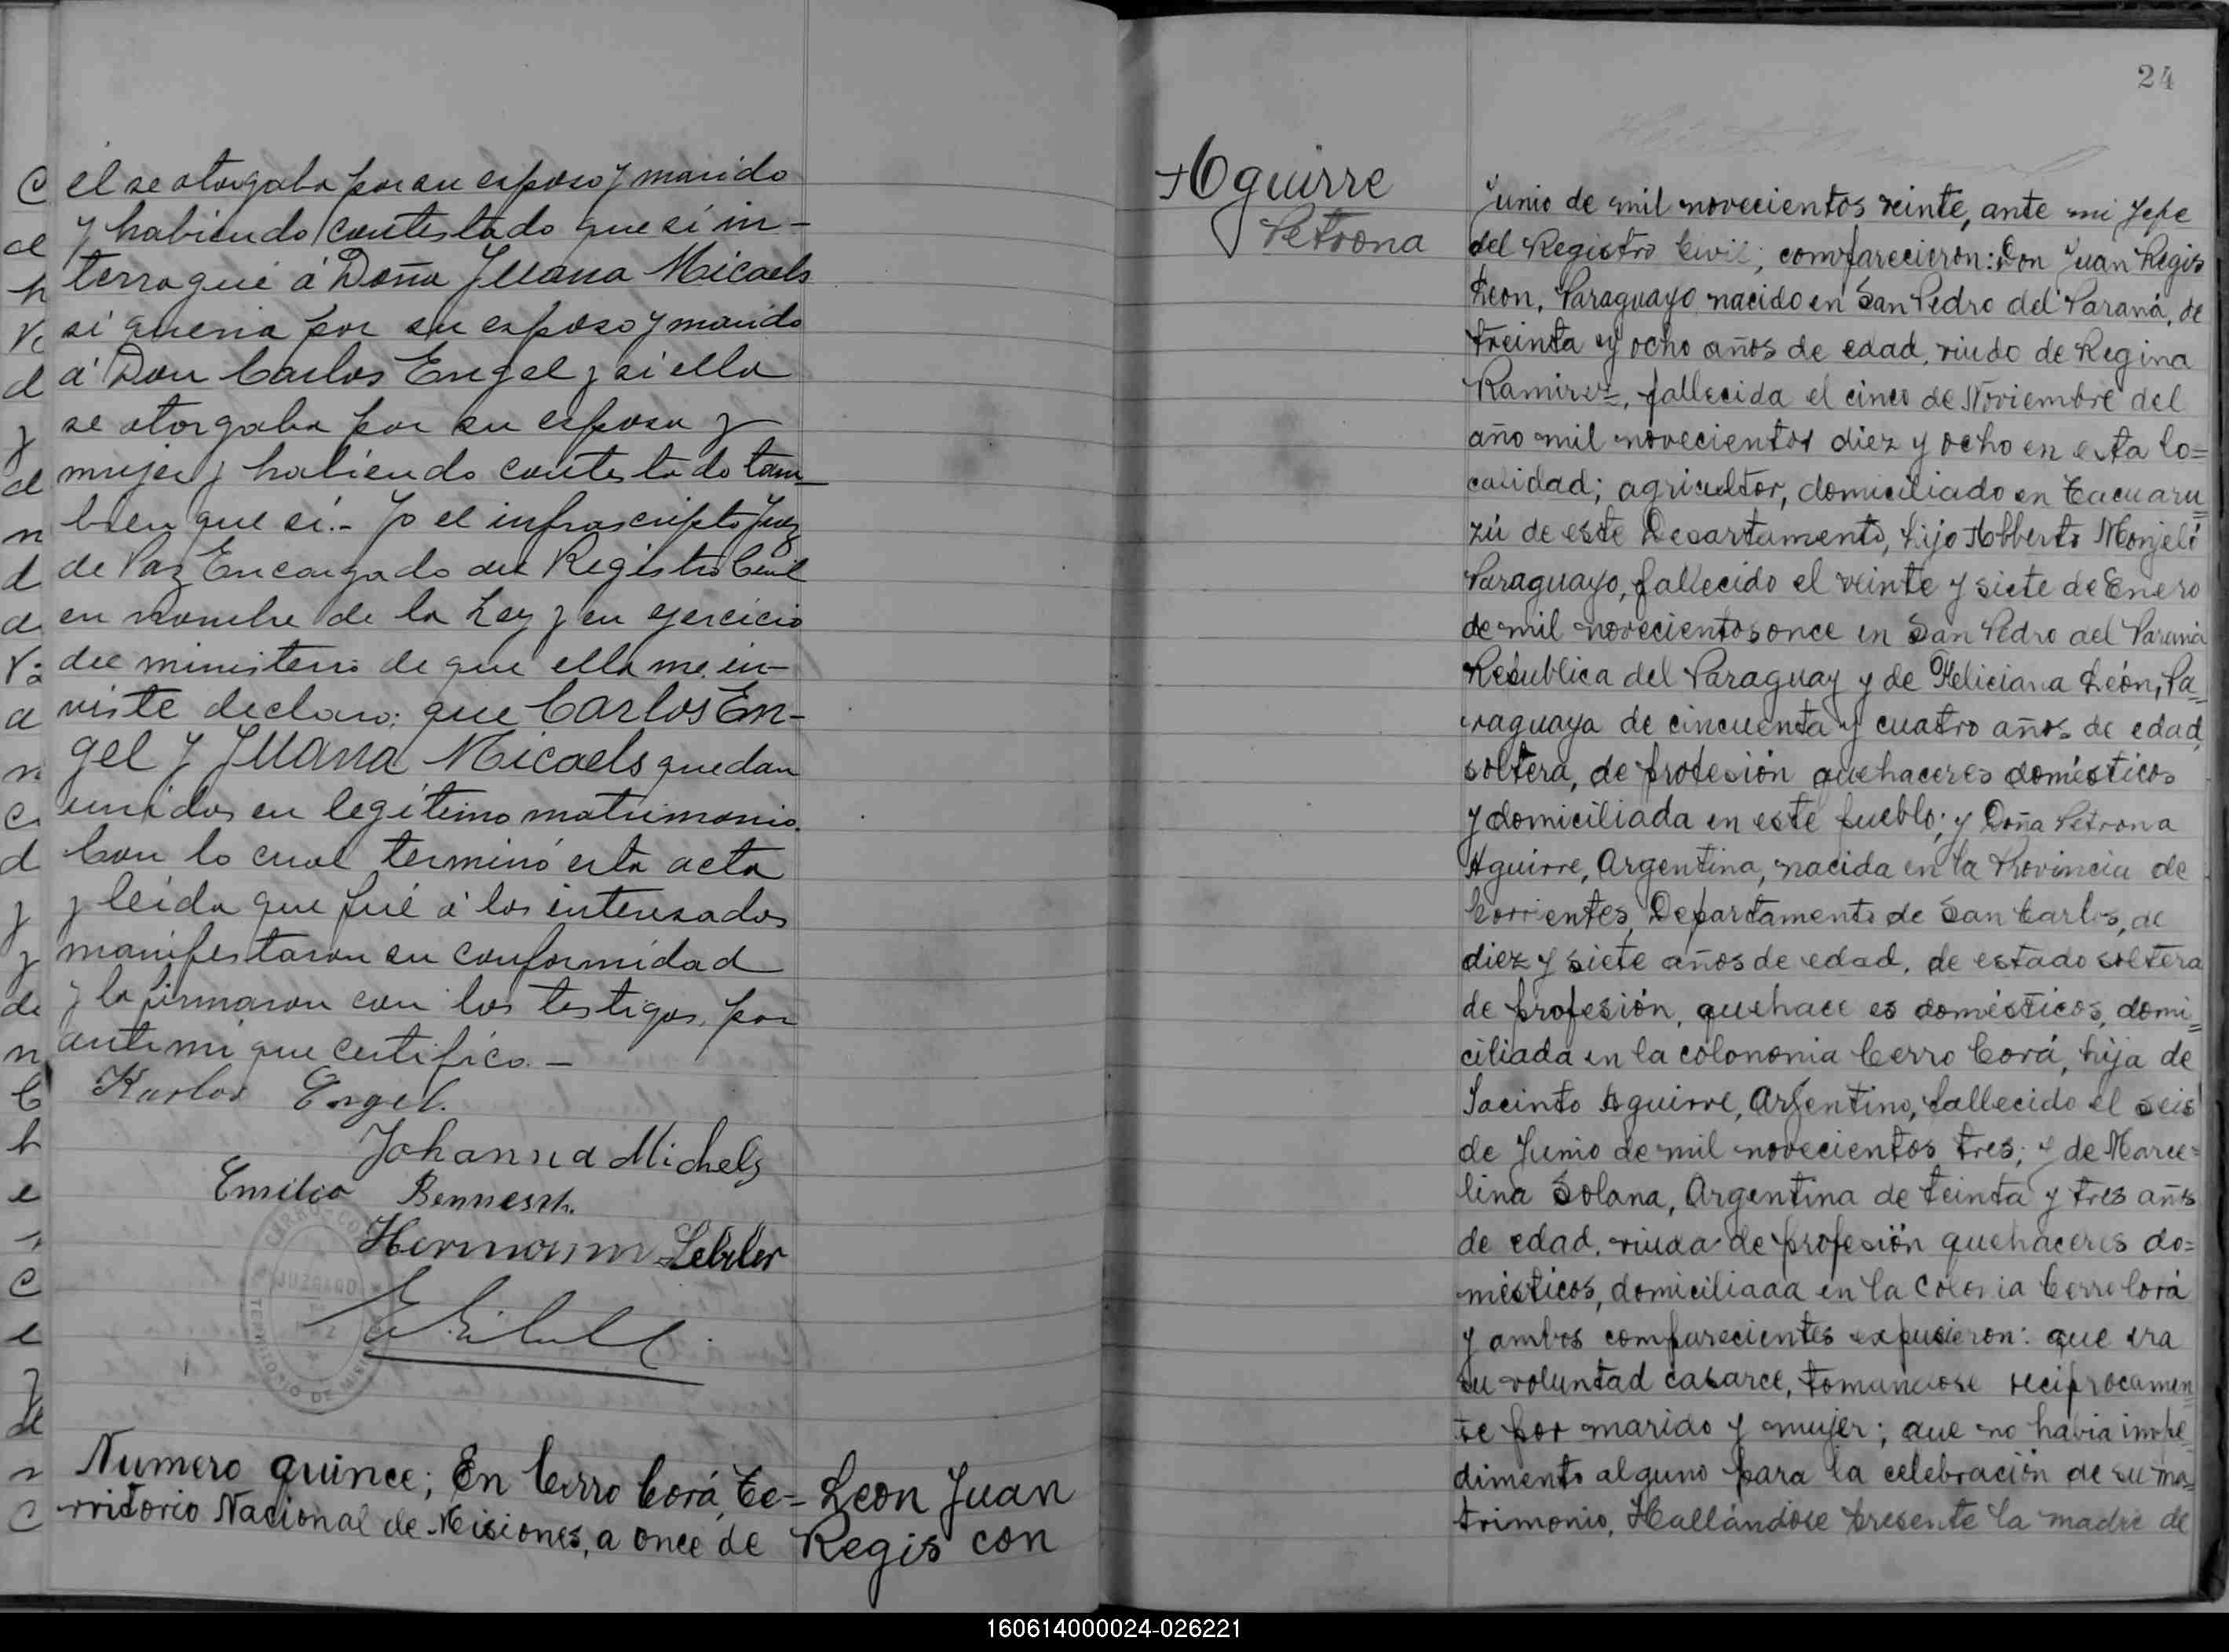 él se otorgaba por su esposo y marido
y habiendo contestado que sí in-
terrogué á Doña Juana Micaels
si queria por su esposo y marido
á Don Carlos Engel y si ella
se otorgaba por su esposa y
mujer y habiendo contestado tam-
bien que sí.- Yo el infrascripto Juez
de Paz Encargado del Registro Civil
en nombre de la Ley y en ejercicio
del ministerio de que ella me in-
viste declaro: que Carlos En-
gel y Juana Micaels quedan
unidos en legítimo matrimonio.
Con lo cual terminó esta acta
y leida que fué á los interesados
manifestaron su conformidad
y la firmaron con los testigos, por
ante mi que certifico.-
Karlos Engel.
Johanna Michels
Emilio
Hermann
CERRO-CO
JUZGADO
TERRITORIO DE MI
Numero quince; En Cerro Corá, Te=
rritorio Nacional de Misiones, a once de
Leon Juan
Regis con
24
Aguirre
Petrona
Junio de mil novecientos veinte, ante mi Jefe
del Registro Civil; comparecieron: Don Juan Regis
Leon, Paraguayo nacido en San Pedro del Paraná, de
treinta y ocho años de edad, viudo de Regina
Ramirez, fallecida el cinco de Noviembre del
año mil novecientos diez y ocho en esta lo=
calidad; agricultor, domiciliado en Tacuaru
zú de este Departamento, hijo Alberto Monjeló
Paraguayo, fallecido el veinte y siete de Enero
de mil novecientos once en San Pedro del Paraná
República del Paraguay y de Feliciana León, Pa=
raguaya de cincuenta y cuatro años de edad,
soltera, de profesión quehaceres domésticos
y domiciliada en este pueblo; y Doña Petrona
Aguirre, Argentina, nacida en la Provincia de
Corrientes, Departamento de San Carlos, de
diez y siete años de edad, de estado soltera
de profesión, quehace es domésticos, domi=
ciliada en la colononia Cerro Corá, hija de
Jacinto Aguirre, Argentino, fallecido el seis
de Junio de mil novecientos tres; y de Marce=
lina Solana, Argentina de teinta y tres añs
de edad, viuda de profesión quehaceres do=
mésticos, domiciliada en la Colonia Cerro Corá
y ambos comparecientes expusieron: que era
su voluntad casarce, tomandose reciprocamen=
te por marido y mujer; que no habia impe=
dimento alguno para la celebración de su ma=
trimonio, Hallándose presente la madre de
160614000024-026221